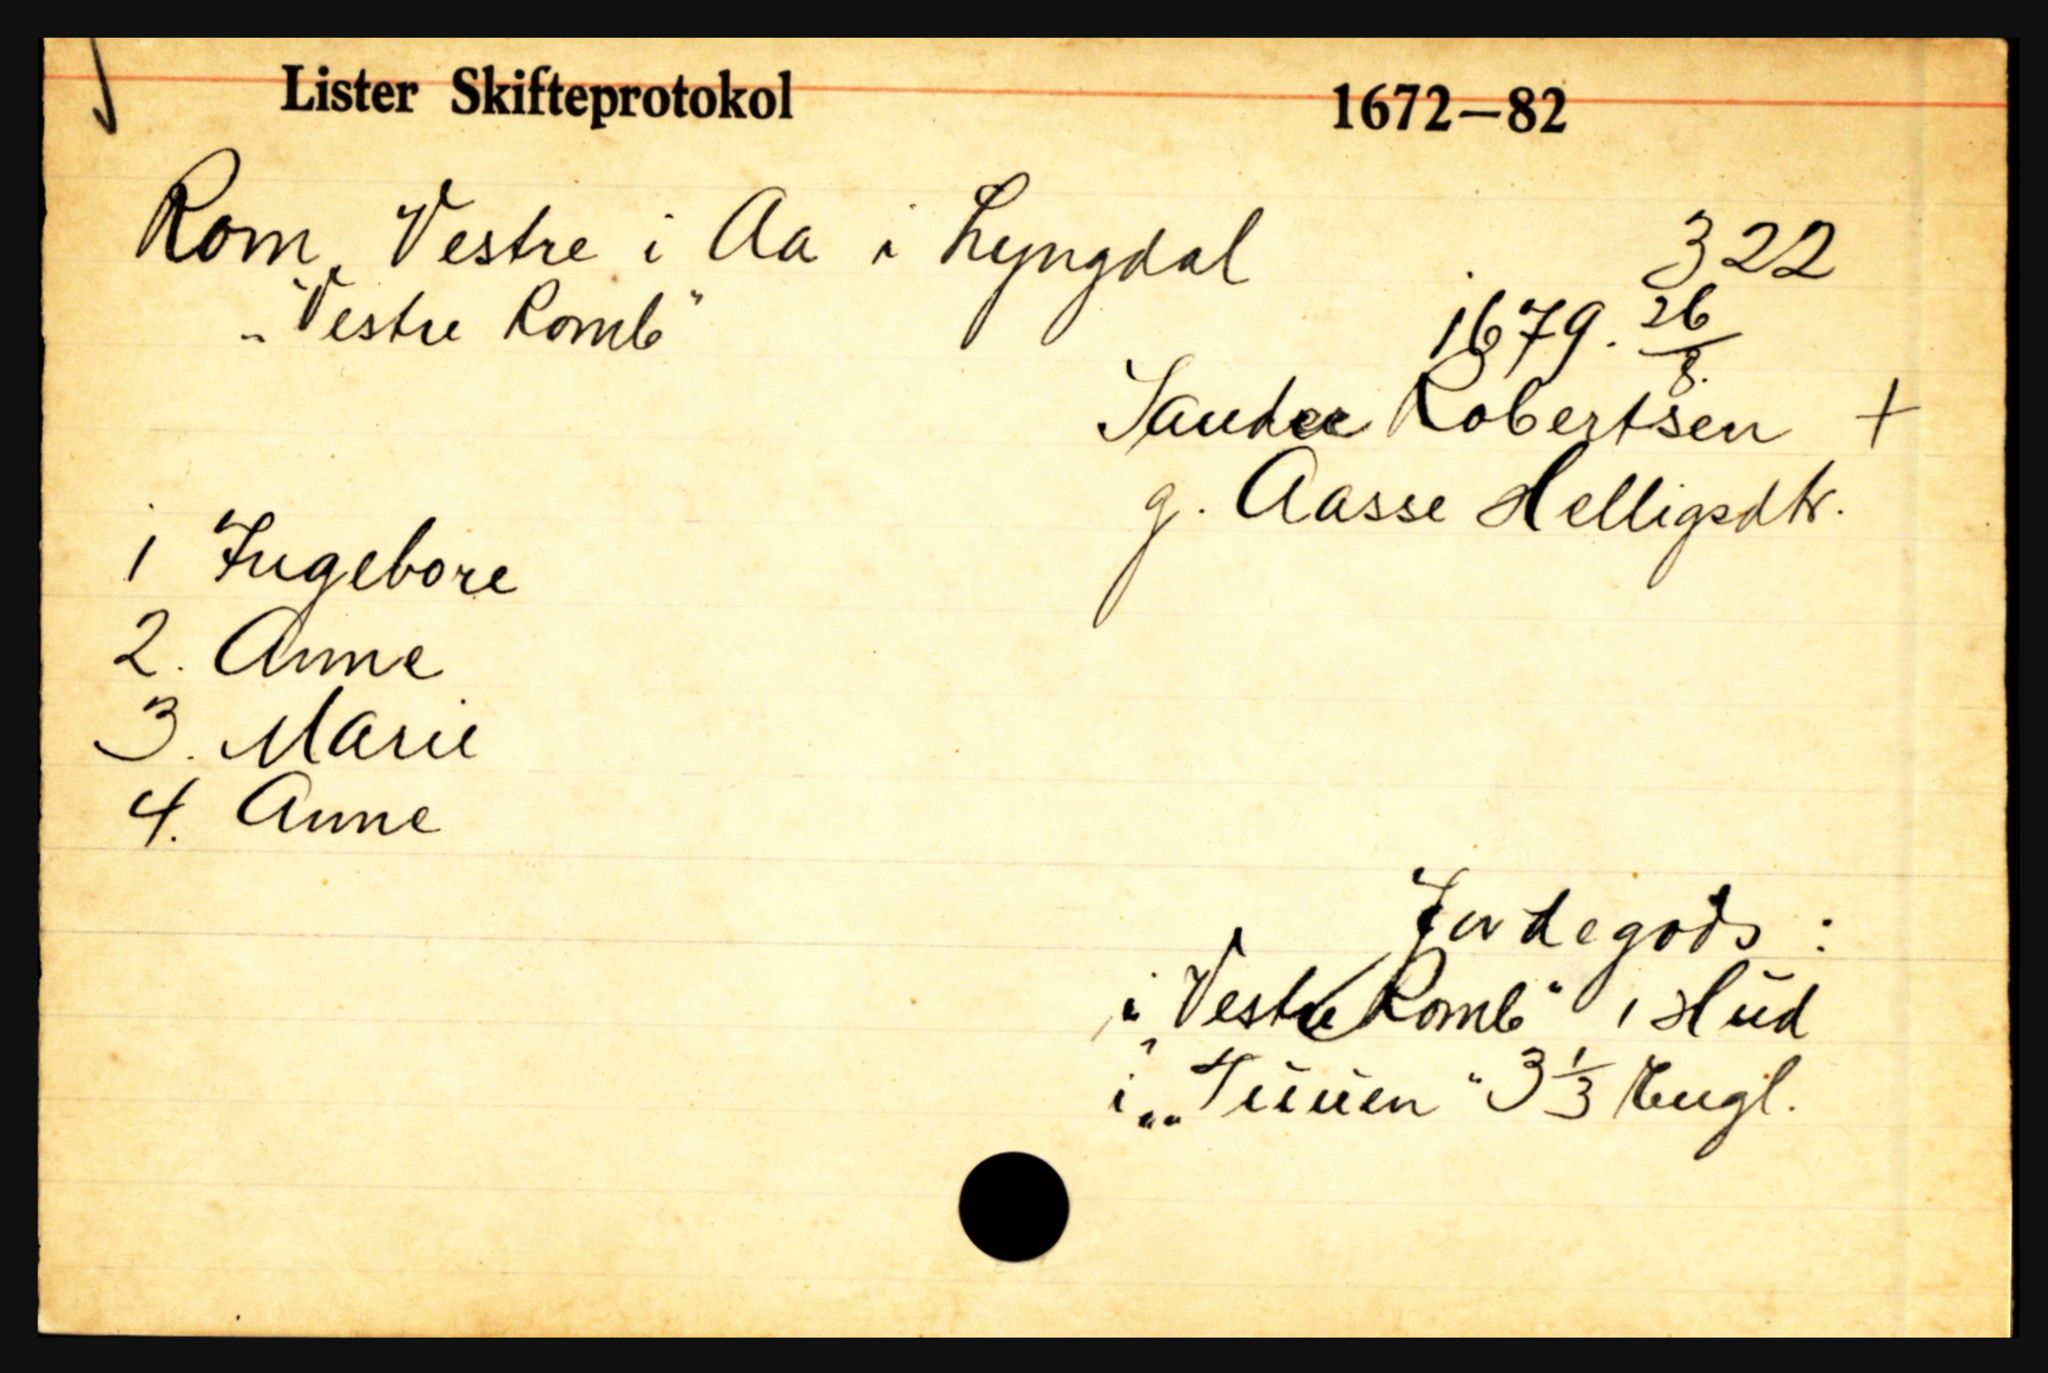 Lister Skifteprotokol 1672-82
Rom, Vestre i Aa i Lyngdal 322
"Vestre Romb" 1679. 26/8.
Sander Robertsen +
g. Aasse Helligsdtr.
1 Ingebore
2. Anne
3. Marie
4. Anne
Jordegods:
i "Vestre Romb" 1 Hud
i "Tüüen" 3 1/3 Engl.